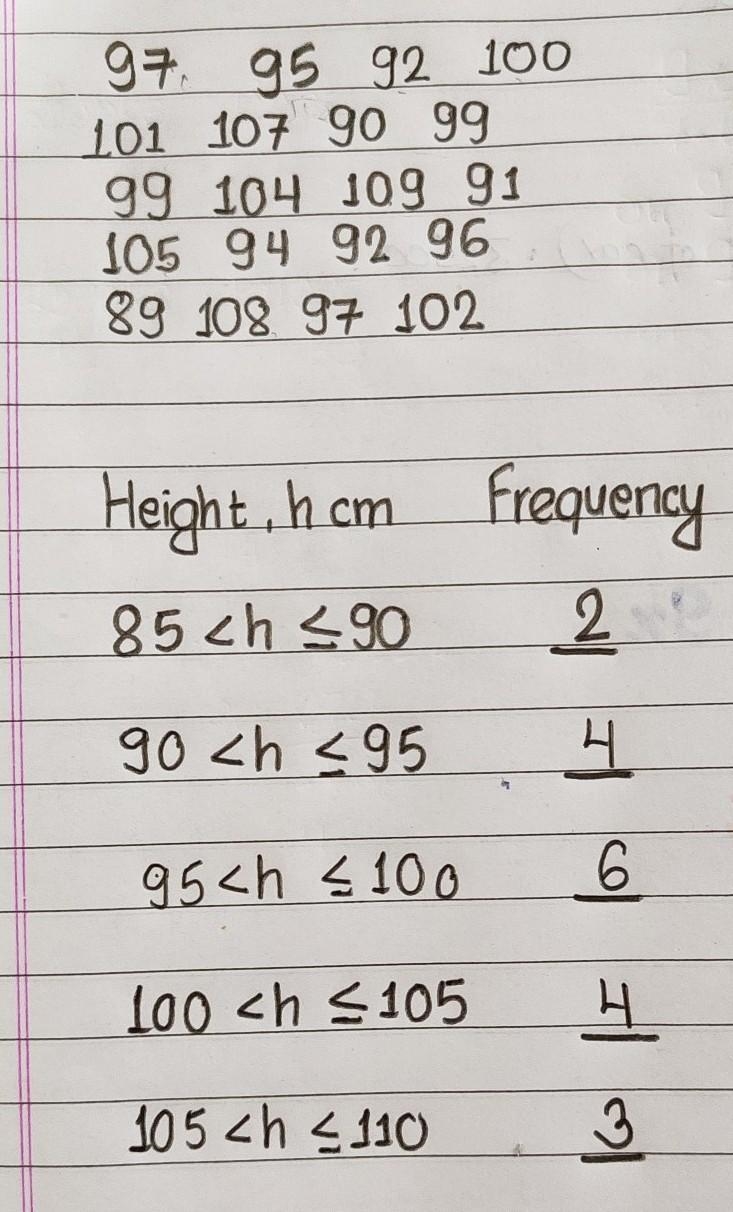 97 95 92 100
101 107 90 99
99 104 109 91
105 94 92 96
89 108 97 102
Height, h cm Frequency
85 < h ≤ 90 2
90 < h ≤ 95 4
95 < h ≤ 100 6
100 < h ≤ 105 4
105 < h ≤ 110 3